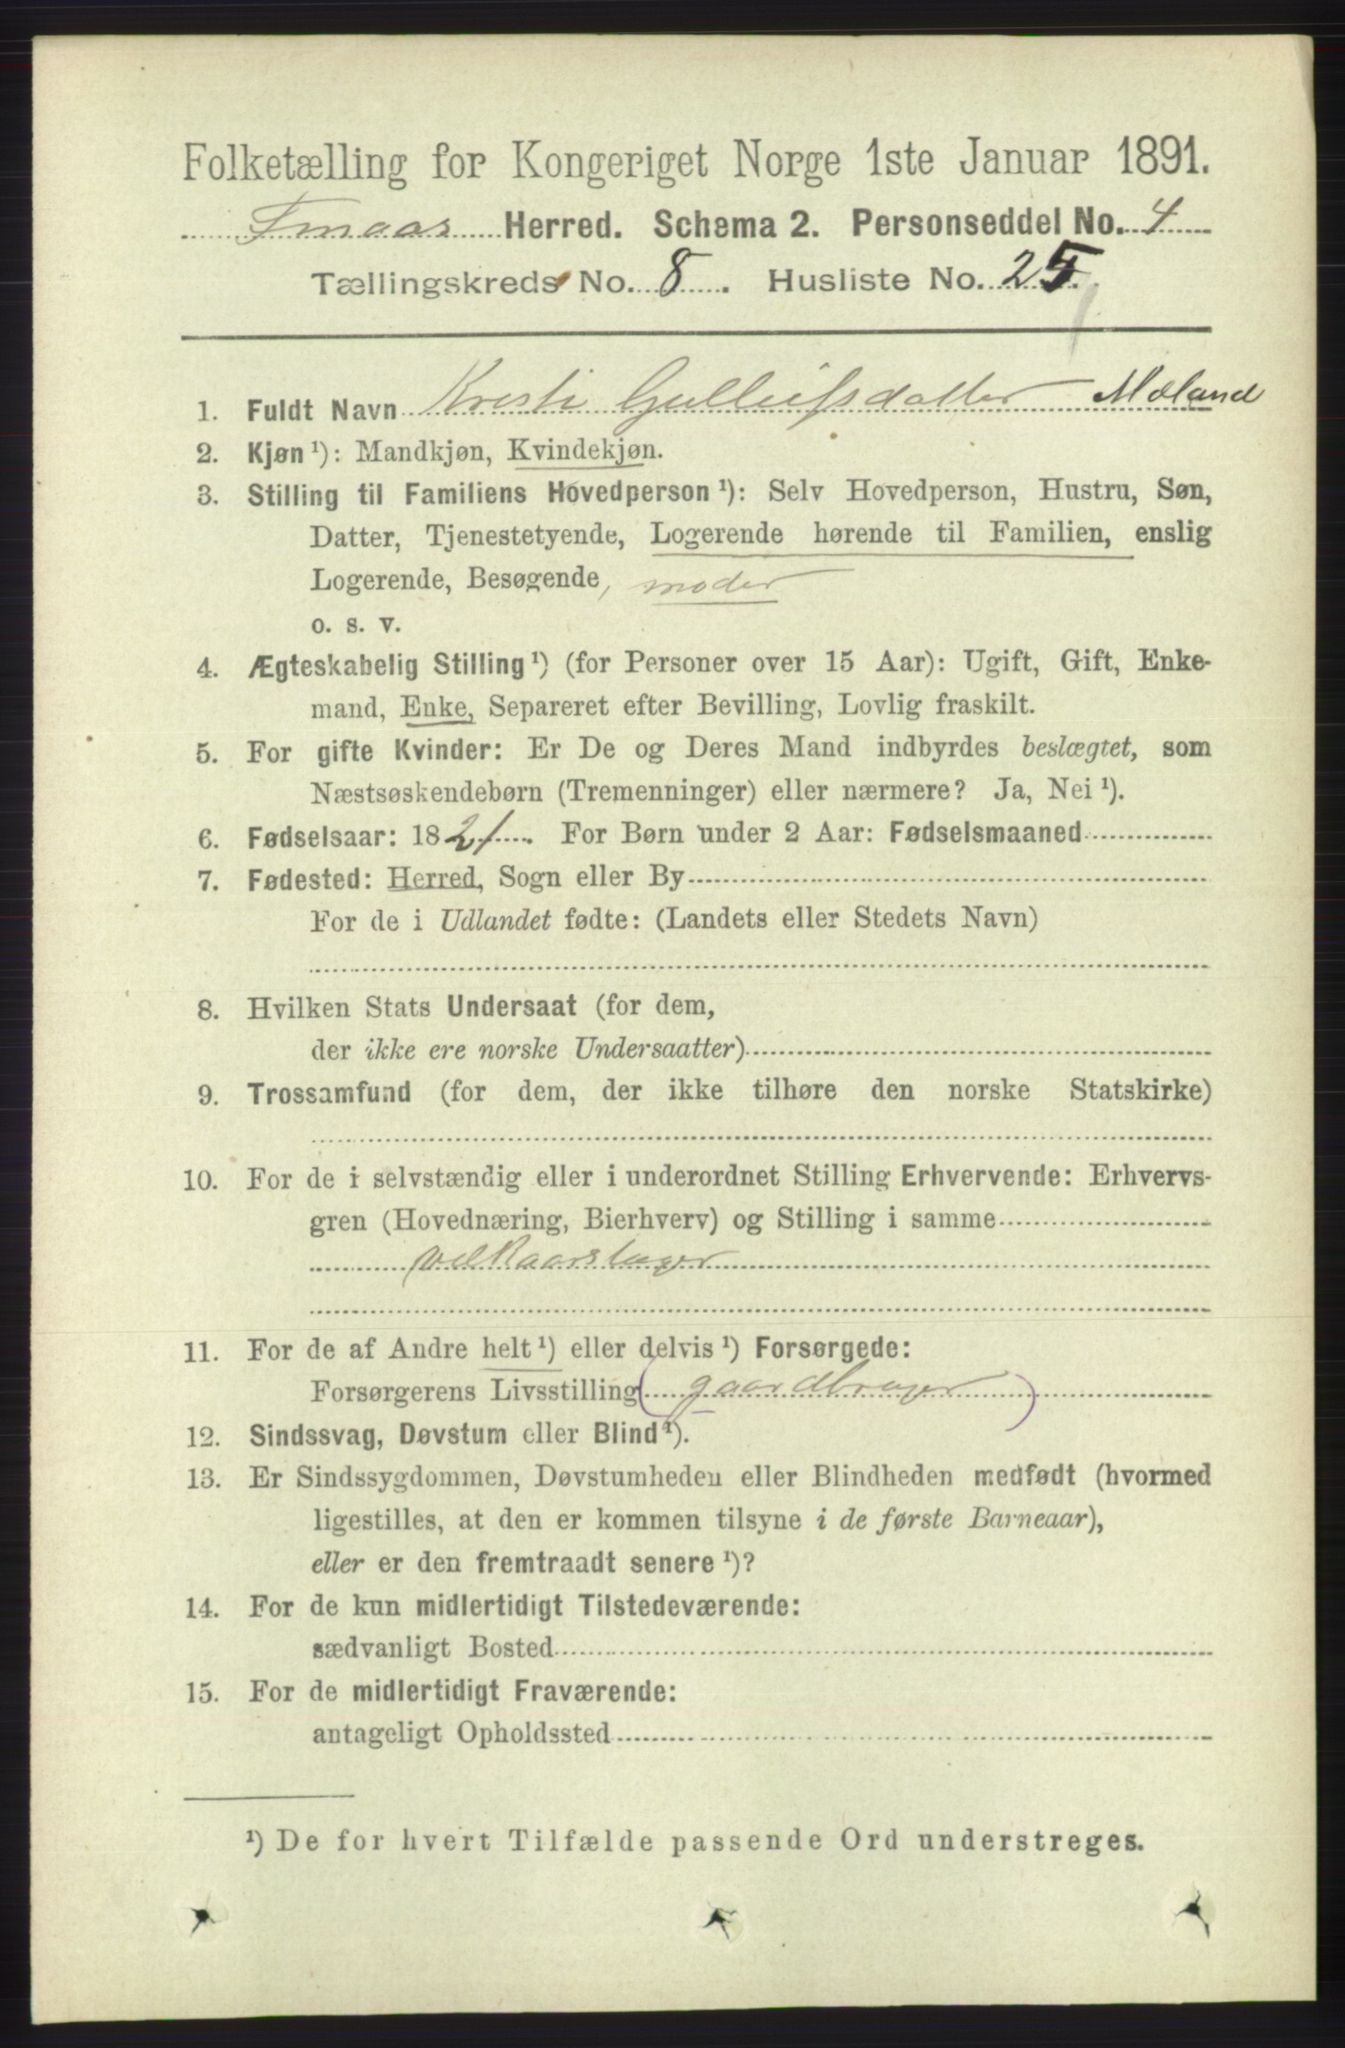 Folketælling for Kongeriget Norge 1ste Januar 1891.
Fmaas Herred. Schema 2. Personseddel No. 4
Tællingskreds No. 8. Husliste No. 25.
1. Fuldt Navn Kresti Gulleifsdatter Mæland
2. Kjøn ¹): Mandkjøn, Kvindekjøn.
3. Stilling til Familiens Hovedperson ¹): Selv Hovedperson, Hustru, Søn,
Datter, Tjenestetyende, Logerende hørende til Familien, enslig
Logerende, Besøgende, moder
o. s. v.
4. Ægteskabelig Stilling ¹) (for Personer over 15 Aar): Ugift, Gift, Enke-
mand, Enke, Separeret efter Bevilling, Lovlig fraskilt.
5. For gifte Kvinder: Er De og Deres Mand indbyrdes beslægtet, som
Næstsøskendebørn (Tremenninger) eller nærmere? Ja, Nei ¹).
6. Fødselsaar: 1821. For Børn under 2 Aar: Fødselsmaaned
7. Fødested: Herred, Sogn eller By
For de i Udlandet fødte: (Landets eller Stedets Navn)
8. Hvilken Stats Undersaat (for dem,
der ikke ere norske Undersaatter)
9. Trossamfund (for dem, der ikke tilhøre den norske Statskirke)
10. For de i selvstændig eller i underordnet Stilling Erhvervende: Erhvervs-
gren (Hovednæring, Bierhverv) og Stilling i samme
velkaarstager
11. For de af Andre helt ¹) eller delvis ¹) Forsørgede:
Forsørgerens Livsstilling (gaardbruger)
12. Sindssvag, Døvstum eller Blind ¹).
13. Er Sindssygdommen, Døvstumheden eller Blindheden medfødt (hvormed
ligestilles, at den er kommen tilsyne i de første Barneaar),
eller er den fremtraadt senere ¹)?
14. For de kun midlertidigt Tilstedeværende:
sædvanligt Bosted
15. For de midlertidigt Fraværende:
antageligt Opholdssted
¹) De for hvert Tilfælde passende Ord understreges.